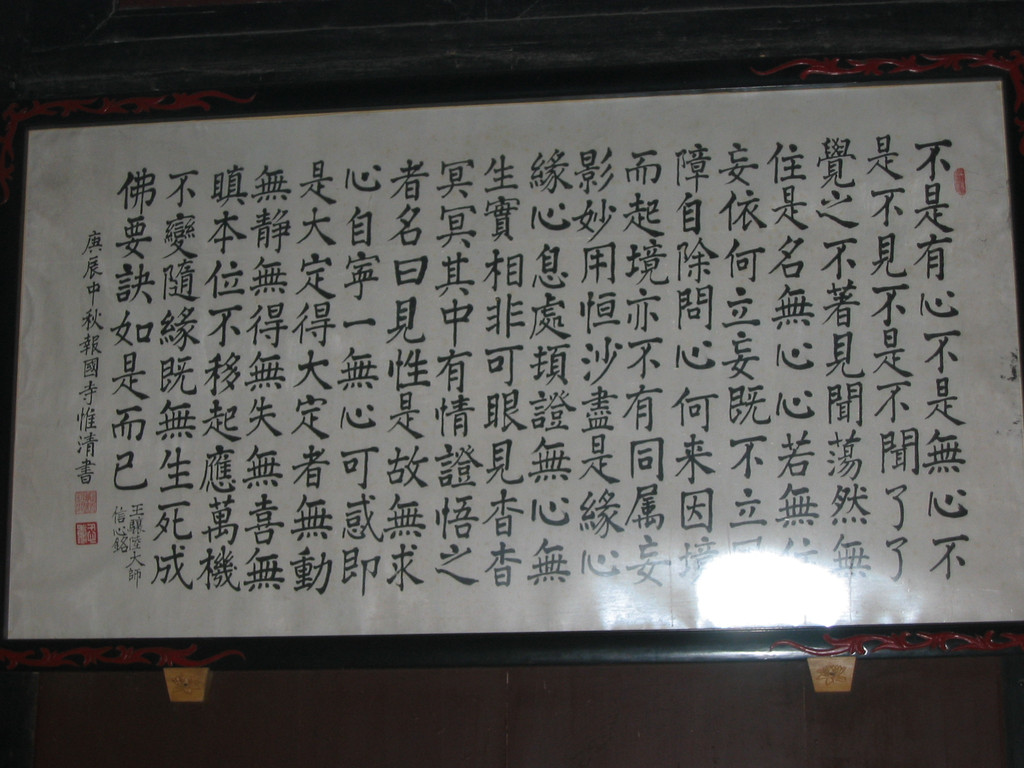 不是有心不是無心不
是不見不是不聞了了
覺之不著見聞蕩然無
住是名無心心若無住
妄依何立妄既不立
障自除問心何来因境
而起境亦不有同属妄
影妙用恒沙盡是緣心
緣心息處頓證無心無
生實相非可眼見杳杳
冥冥其中有情證悟之
者名曰見性是故無求
心自寧一無心可感即
是大定得大定者無動
無静無得無失無喜無
瞋本位不移起應萬機
不變隨緣既無生死成
佛要訣如是而已
王驤陸大師
信心銘
庚辰中秋報國寺惟清書